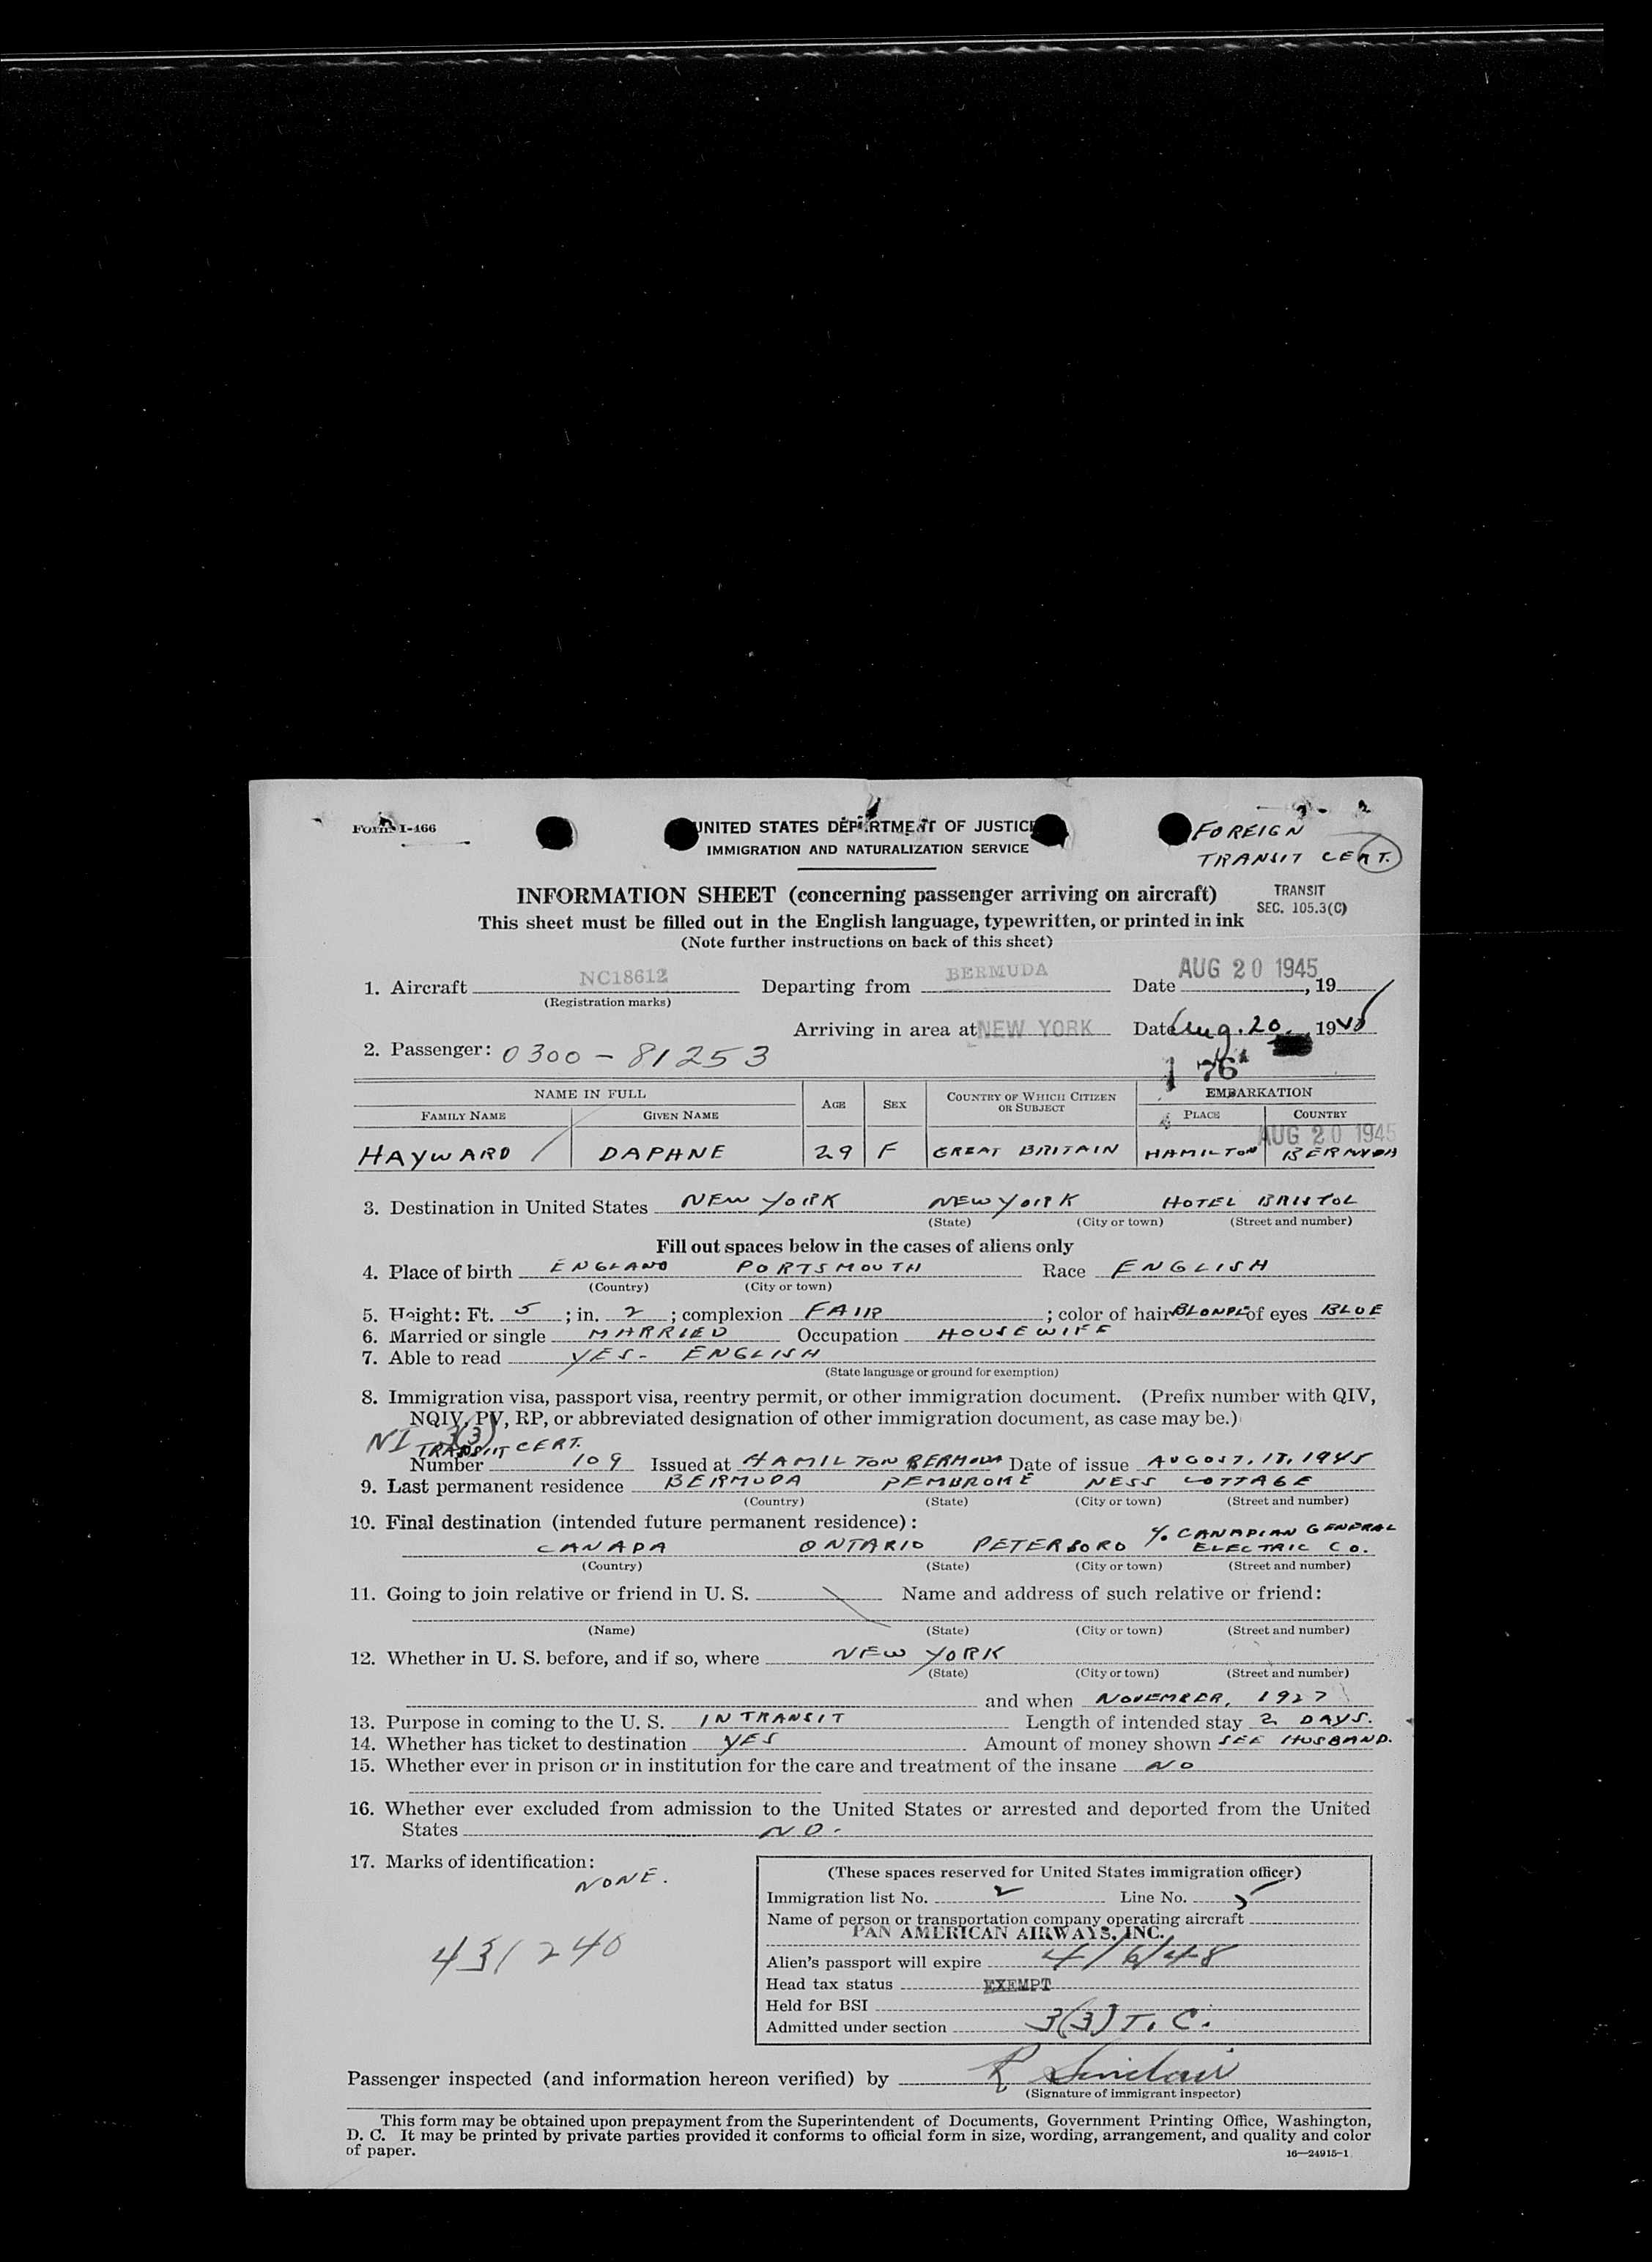 Form I-466
UNITED STATES DEPARTMENT OF JUSTICE
IMMIGRATION AND NATURALIZATION SERVICE
FOREIGN
TRANSIT CERT.
INFORMATION SHEET (concerning passenger arriving on aircraft)
TRANSIT
SEC. 105.3(C)
This sheet must be filled out in the English language, typewritten, or printed in ink
(Note further instructions on back of this sheet)
1. Aircraft NC18612 Departing from BERMUDA Date AUG 20 1945, 19
(Registration marks)
Arriving in area at NEW YORK Date Aug. 20, 1945
2. Passenger: 0300-81253
176
NAME IN FULL AGE SEX COUNTRY OF WHICH CITIZEN OR SUBJECT EMBARKATION
FAMILY NAME GIVEN NAME PLACE COUNTRY
AUG 20 1945
HAYWARD DAPHNE 29 F GREAT BRITAIN HAMILTON BERMUDA
3. Destination in United States NEW YORK NEW YORK HOTEL BRISTOL
(State) (City or town) (Street and number)
Fill out spaces below in the cases of aliens only
4. Place of birth ENGLAND PORTSMOUTH Race ENGLISH
(Country) (City or town)
5. Height: Ft. 5; in. 2; complexion FAIR; color of hair BLONDE of eyes BLUE
6. Married or single MARRIED Occupation HOUSEWIFE
7. Able to read YES- ENGLISH
(State language or ground for exemption)
8. Immigration visa, passport visa, reentry permit, or other immigration document. (Prefix number with QIV,
NQIV, PV, RP, or abbreviated designation of other immigration document, as case may be.)
NI 3(3)
TRANSIT CERT.
Number 109 Issued at HAMILTON BERMUDA Date of issue AUGUST, 18, 1945
9. Last permanent residence BERMUDA PEMBROKE NESS COTTAGE
(Country) (State) (City or town) (Street and number)
10. Final destination (intended future permanent residence):
CANADA ONTARIO PETERBORO % CANADIAN GENERAL ELECTRIC CO.
(Country) (State) (City or town) (Street and number)
11. Going to join relative or friend in U. S. Name and address of such relative or friend:
(Name) (State) (City or town) (Street and number)
12. Whether in U. S. before, and if so, where NEW YORK
(State) (City or town) (Street and number)
and when NOVEMBER, 1927
13. Purpose in coming to the U. S. IN TRANSIT Length of intended stay 2 DAYS.
14. Whether has ticket to destination YES Amount of money shown SEE HUSBAND.
15. Whether ever in prison or in institution for the care and treatment of the insane NO
16. Whether ever excluded from admission to the United States or arrested and deported from the United
States NO.
17. Marks of identification:
NONE.
431240
(These spaces reserved for United States immigration officer)
Immigration list No. 2 Line No. 5
Name of person or transportation company operating aircraft
PAN AMERICAN AIRWAYS, INC.
Alien's passport will expire 4/6/48
Head tax status EXEMPT
Held for BSI
Admitted under section 3(3) T. C.
Passenger inspected (and information hereon verified) by R Sinclair
(Signature of immigrant inspector)
This form may be obtained upon prepayment from the Superintendent of Documents, Government Printing Office, Washington,
D. C. It may be printed by private parties provided it conforms to official form in size, wording, arrangement, and quality and color
of paper.
16—24915-1